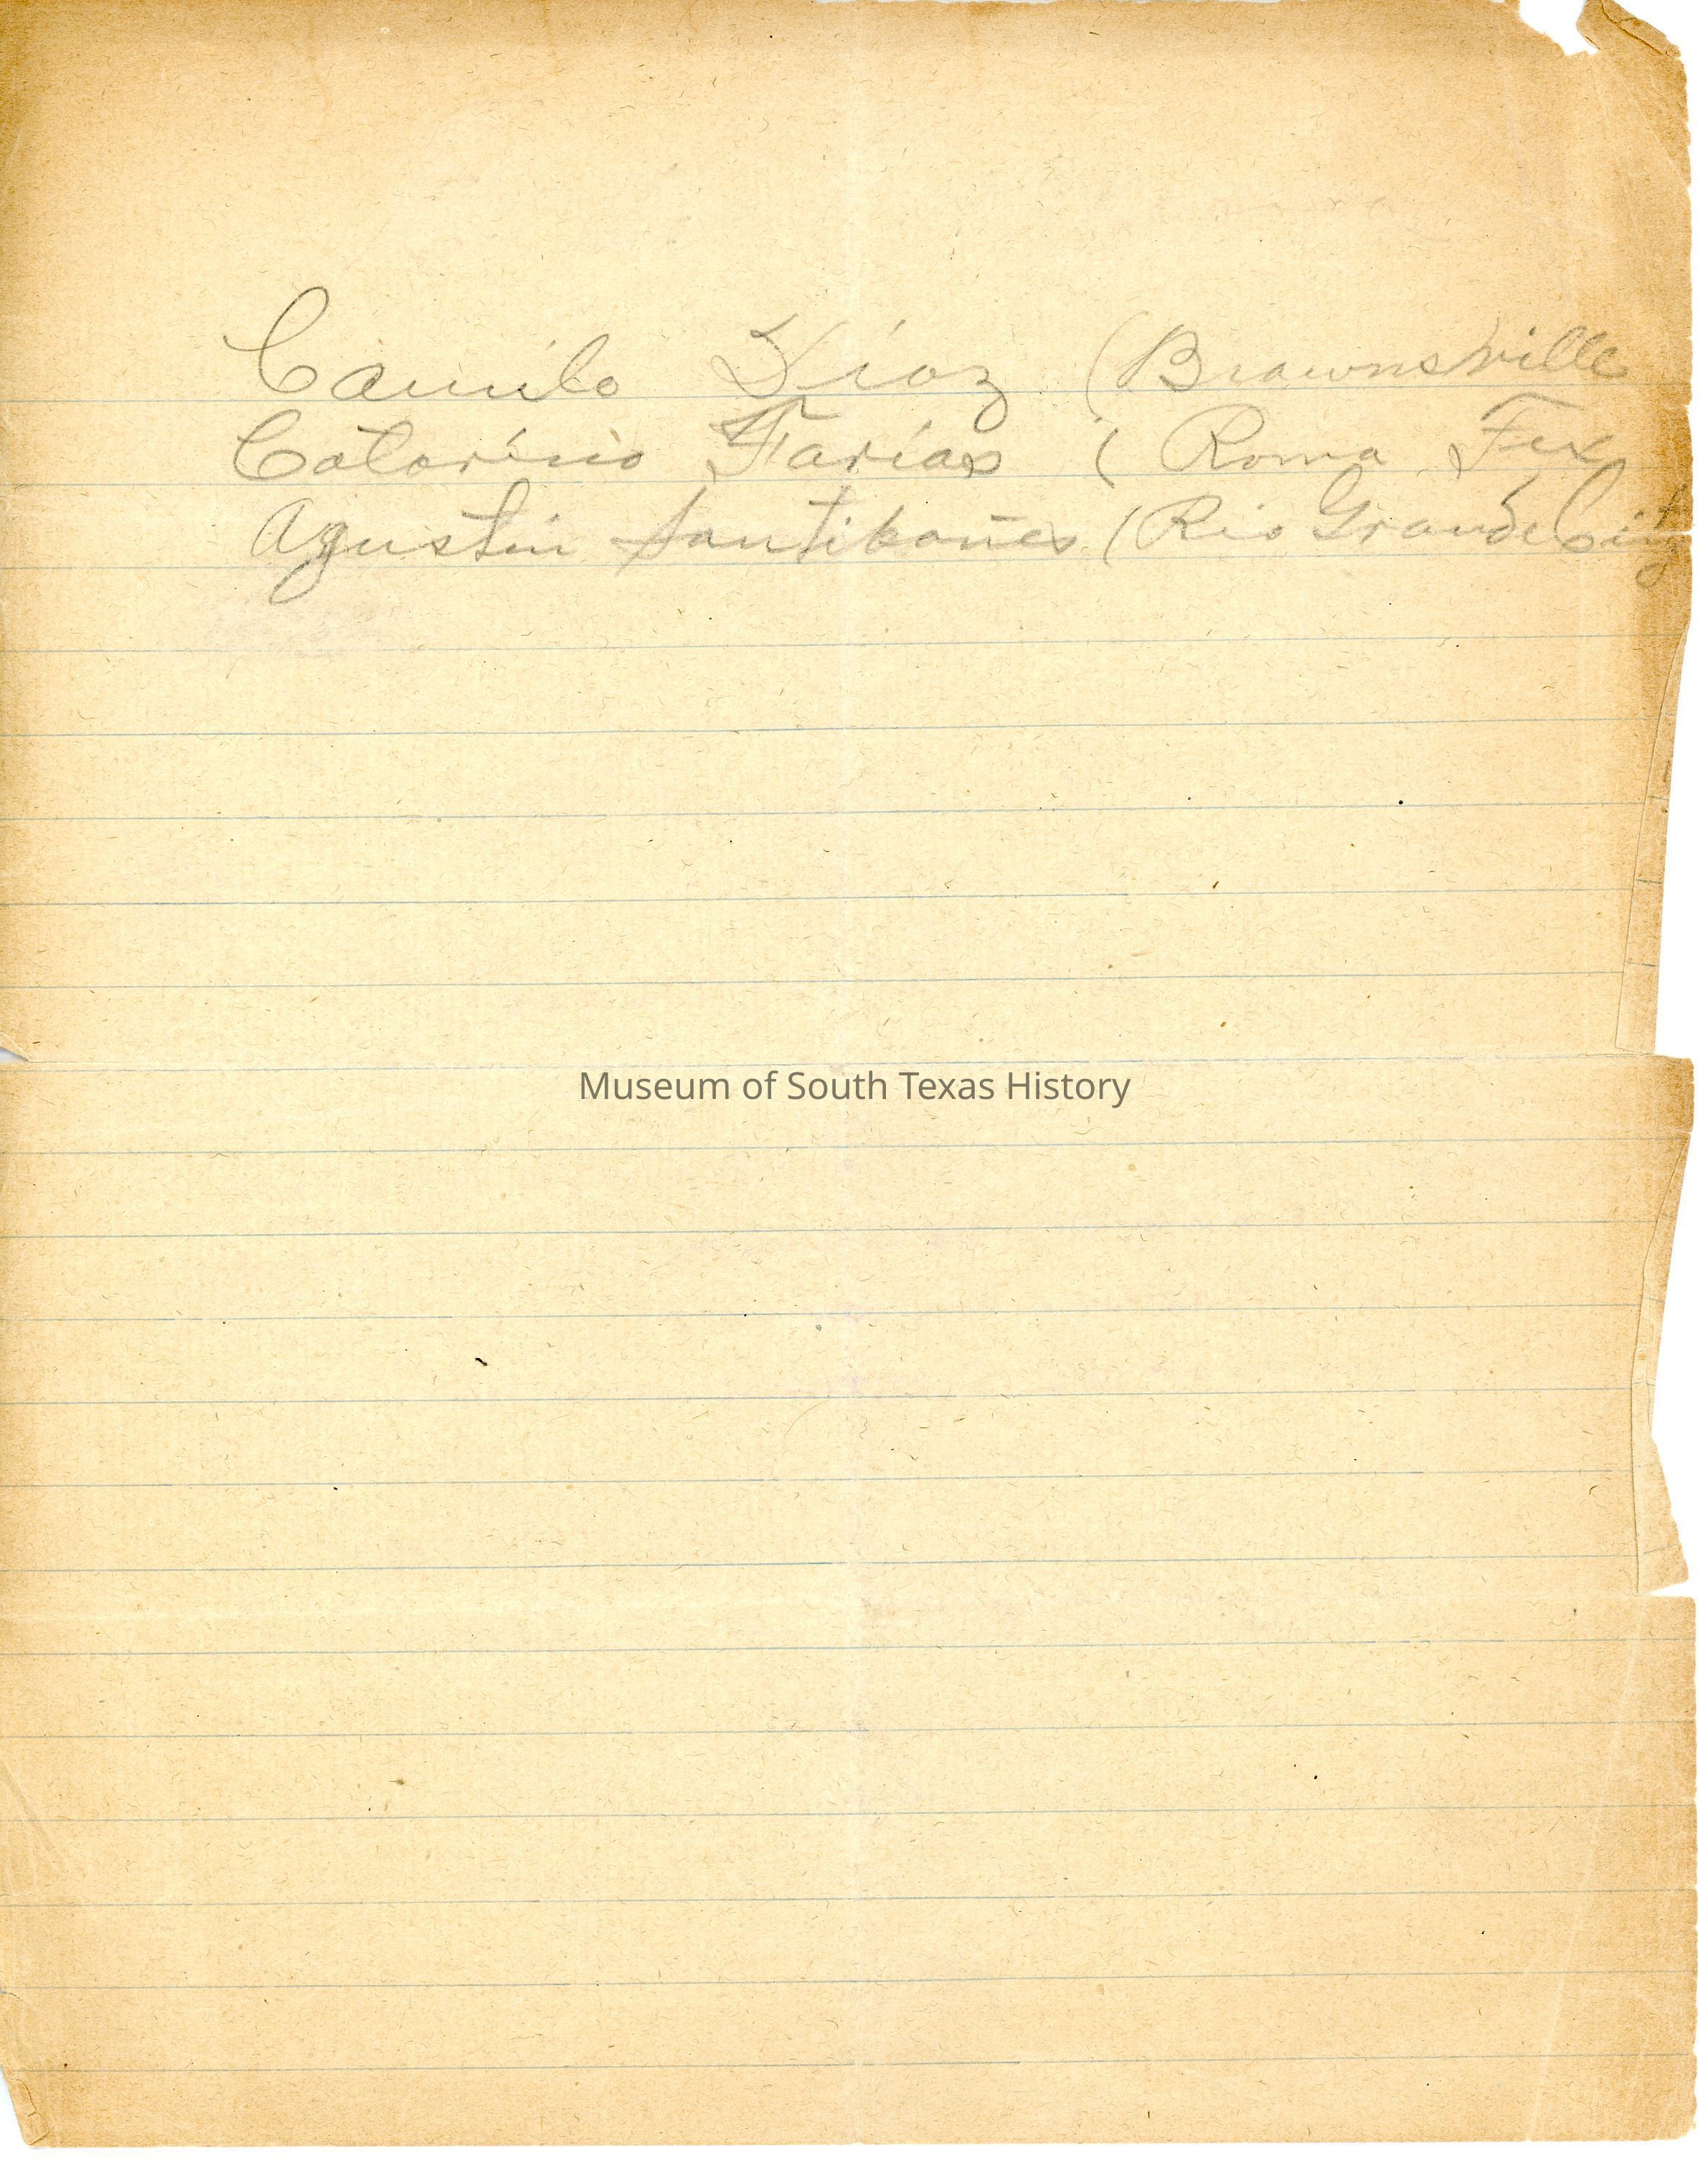 Camilo Díaz (Brownsville
Catarino Farías ( Roma Tex
Agustin Santibañes (Rio Grande City
Museum of South Texas History